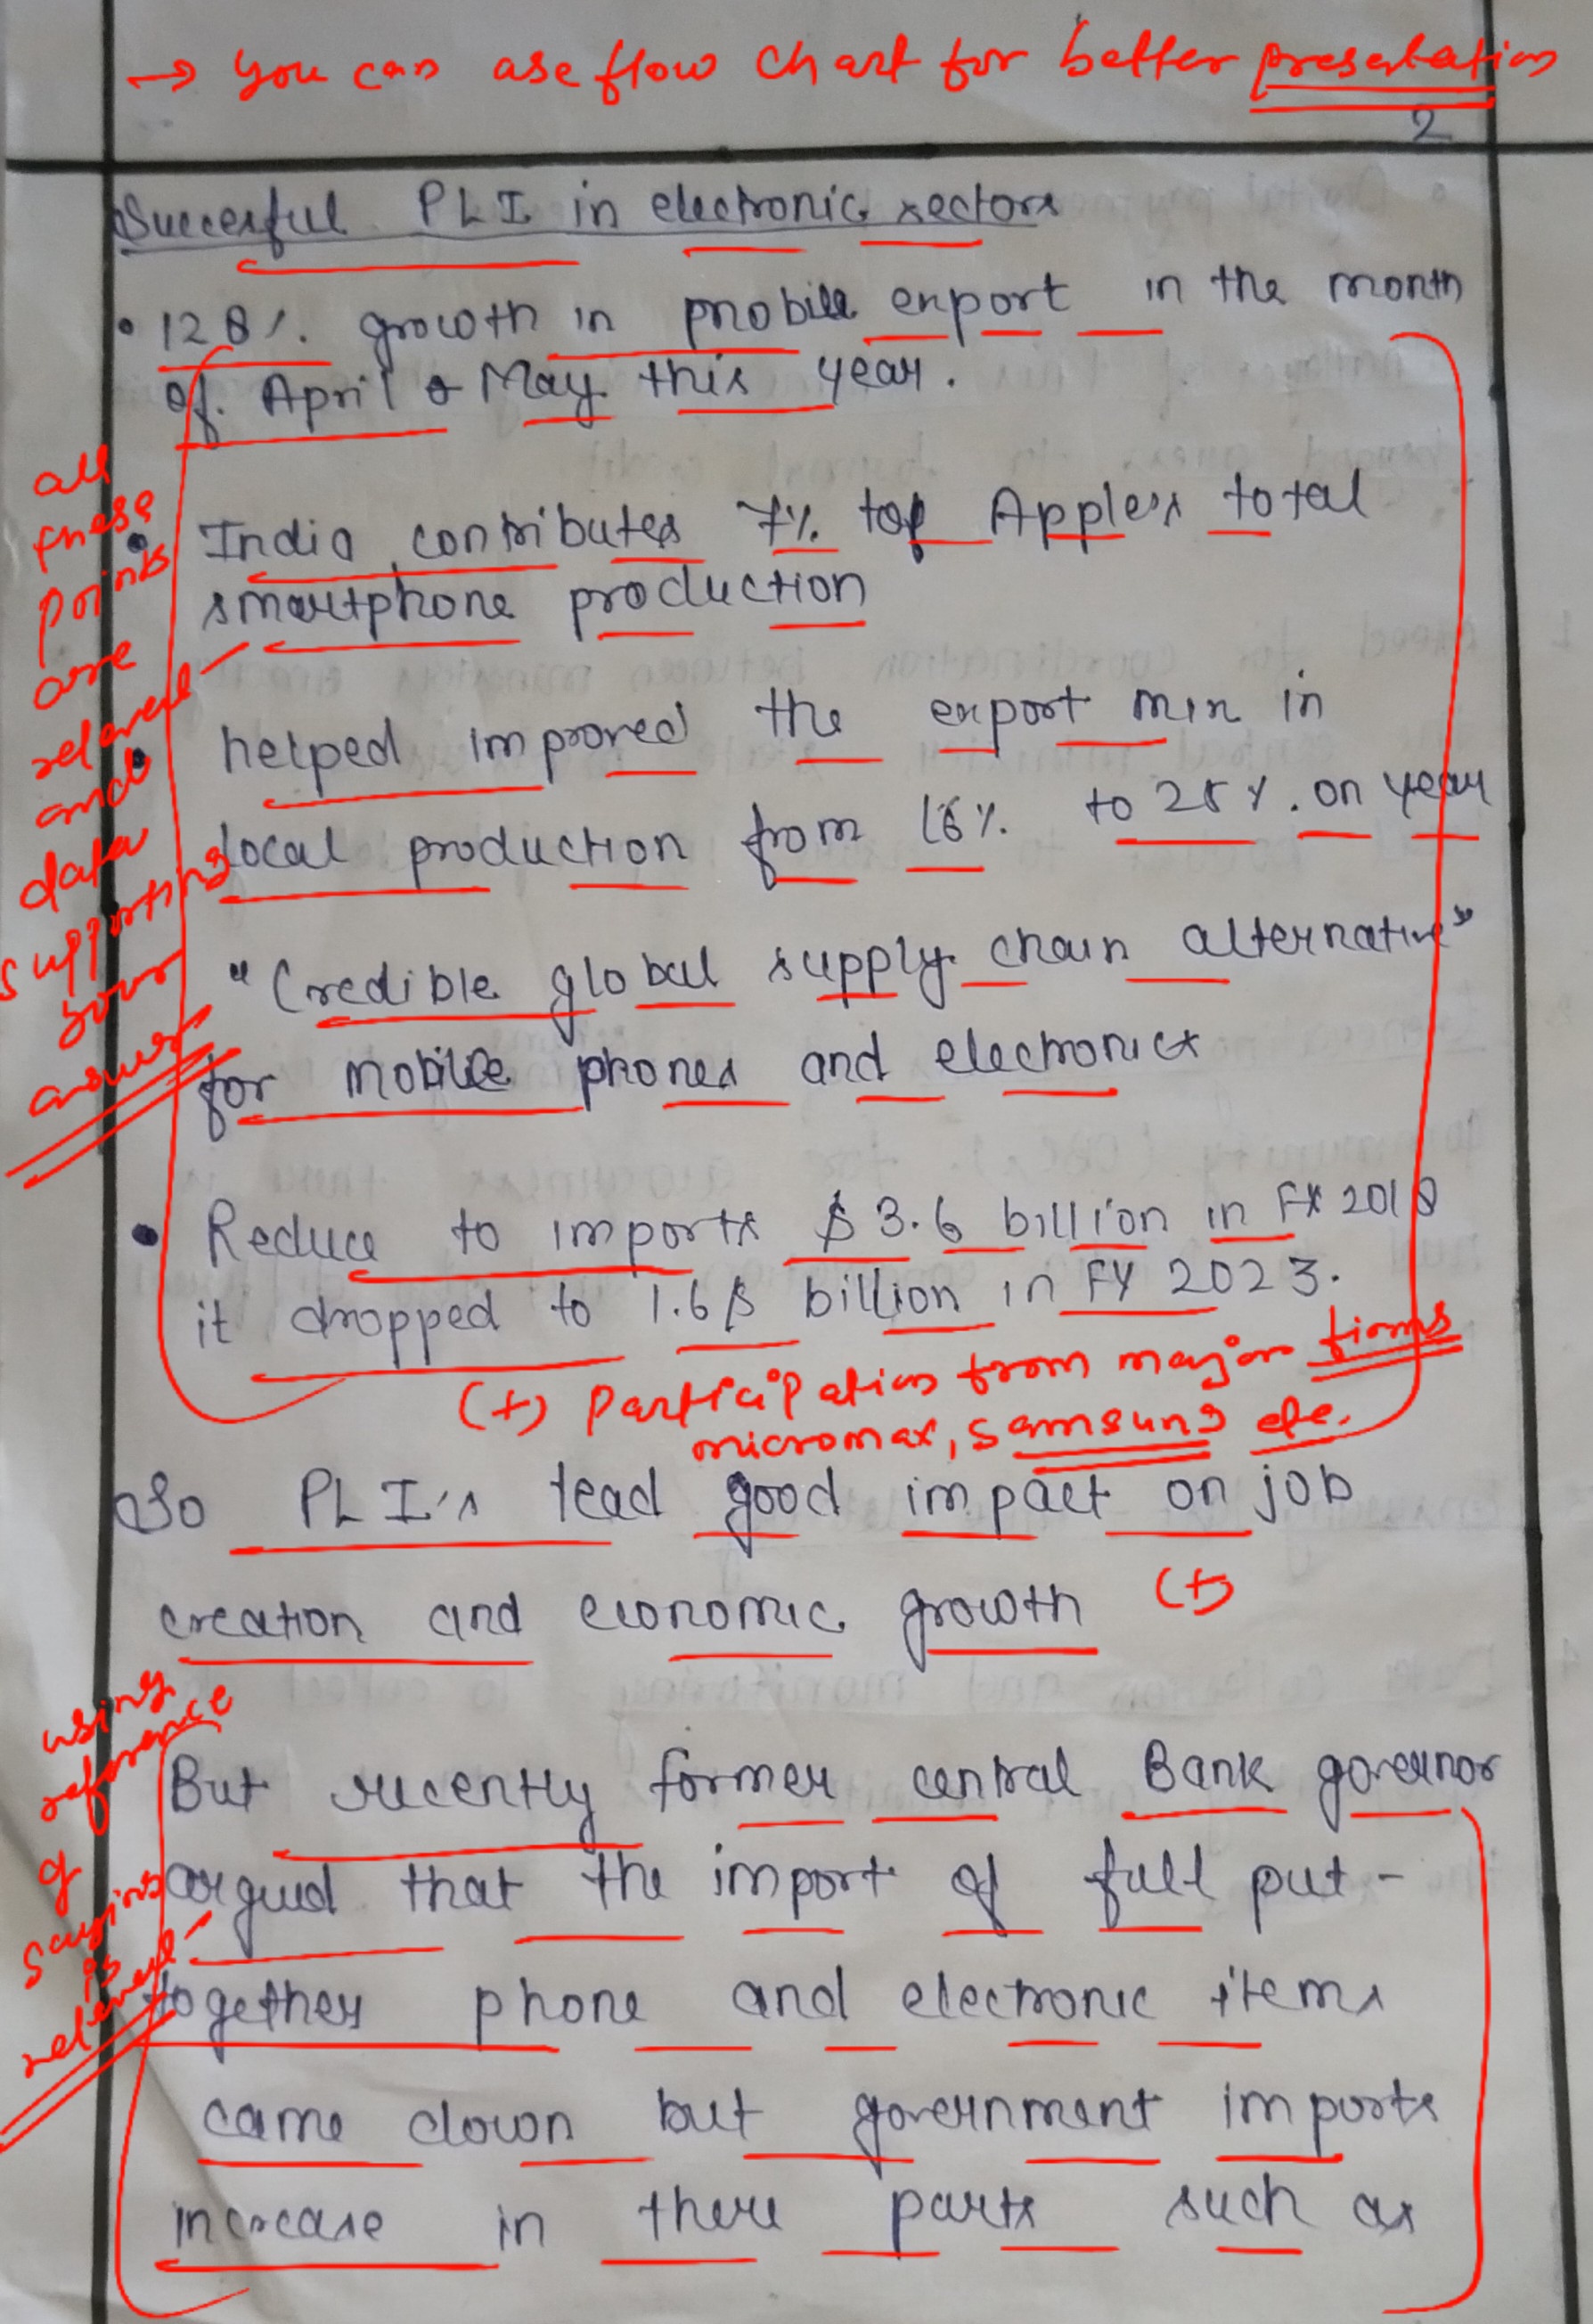 → you can use flow chart for better presentation
2
Succesful PLI in electronic sectors
• 128%. growth in mobile export in the month
of April & May this year.
all
these
points
are
relevent
and
data
supporting
your
answer
• India contributes 7% tof Apple's total
smartphone production
• helped improved the export mix in
local production from 16% to 25%. on year
"Credible global supply chain alternative"
for mobile phones and electronics
• Reduce to imports $3.6 billion in FY 2018
it dropped to 1.6$ billion in FY 2023.
(+) Participation from major firms
micromax, samsung etc.
So PLI's lead good impact on job
creation and economic growth (+)
using
reference
of
sayings
is
relevent
But recently former central Bank governor
argued that the import of full put-
together phone and electronic items
came down but government imports
increase in there parts such as